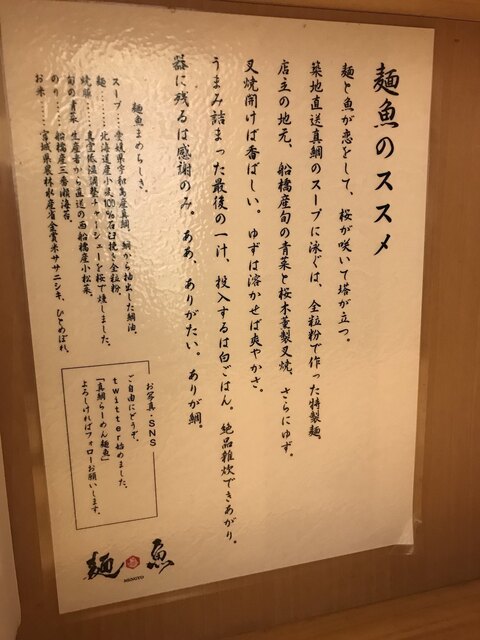 麺魚のススメ
麺と魚が恋をして、桜が咲いて塔が立つ。
築地直送真鯛のスープに泳ぐは、全粒粉で作った特製麺
店主の地元、船橋産旬の青菜と桜木薫製叉焼、さらにゆず。
叉焼開けば香ばしい。ゆずは溶かせば爽やかさ。
うまみ詰まった最後の一汁、投入するは白ごはん。絶品雑炊できあがり。
器に残るは感謝のみ。ああ、ありがたい。ありが鯛。
麺魚まめちしき。
スープ…愛媛県宇和島産真鯛、鯛から抽出した鯛油。
麺………北海道産小麦100%石臼挽き全粒粉。
焼豚……真空低温調整チャーシューを桜で燻しました。
旬の青菜 生産者から直送の西船橋産小松菜。
のり……船橋産三番瀬海苔。
お米……宮城県農林水産省金賞米ササニシキ、ひとめぼれ。
お写真・SNS
ご自由にどうぞ。
twitter始めました。
「真鯛らーめん麺魚」
よろしければフォローお願いします。
麺魚
MENGYO